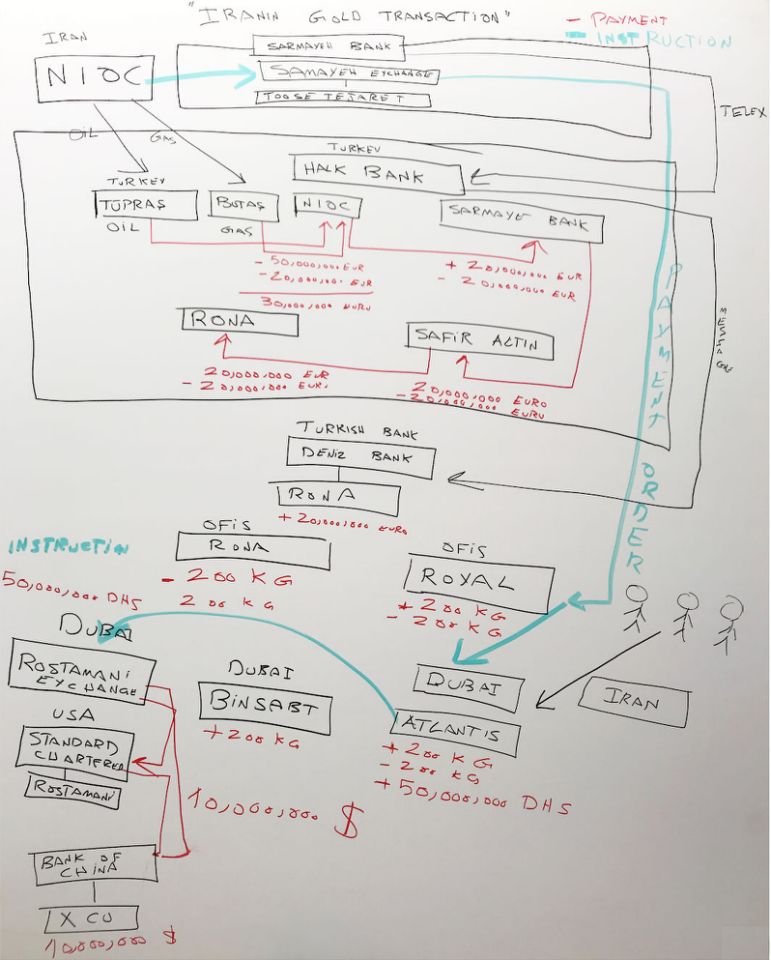 "IRANIN GOLD TRANSACTION"
- PAYMENT
- INSTRUCTION
IRAN
NIOC
SARMAYEH BANK
SAMAYEH EXCHANGE
TOOSE TEJARET
TELEX
OIL
GAS
TURKEY
HALK BANK
TURKEY
TUPRAŞ
OIL
BUTAŞ
GAS
NIOC
SARMAYE BANK
- 50,000,000 EUR
- 20,000,000 EUR
30,000,000 EURO
+ 20,000,000 EUR
- 20,000,000 EUR
RONA
SAFIR ALTIN
20,000,000 EUR
- 20,000,000 EUR.
20,000,000 EURO
- 20,000,000 EURO
PAYMENT ORDER
TURKISH BANK
DENIZ BANK
RONA
+ 20,000,000 EURO
OFiS
RONA
- 200 KG
200 KG
OFiS
ROYAL
+ 200 KG
- 200 KG
INSTRUCTION
50,000,000 DHS
DUBAI
ROSTAMANI
EXCHANGE
DUBAI
BINSABT
+ 200 KG
DUBAI
ATLANTIS
+ 200 KG
- 200 KG
+ 50,000,000 DHS
IRAN
USA
STANDARD
CHARTERED
ROSTAMANI
10,000,000 $
BANK OF
CHINA
X CO
10,000,000 $